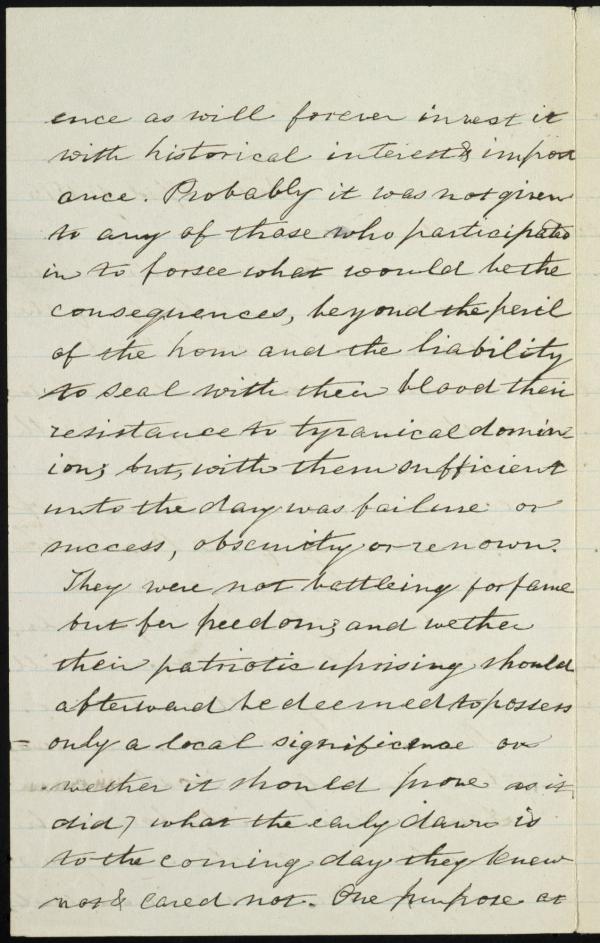 ence as will forever invest it
with historical interest & import
ance. Probably it was not given
to any of those who participated
in to forsee what would be the
consequences, beyond the peril
of the hour and the liability
to seal with their blood their
resistance to tyranical domin
ion; but, with them sufficient
unto the day was failure or
success, obscurity or renown.
They were not battleing for fame
but for freedom; and wether
their patriotic uprising should
afterward be deemed to possess
only a local significance or
wether it should prove as it
did, what the early dawn is
to the coming day they knew
not & cared not. One purpose at